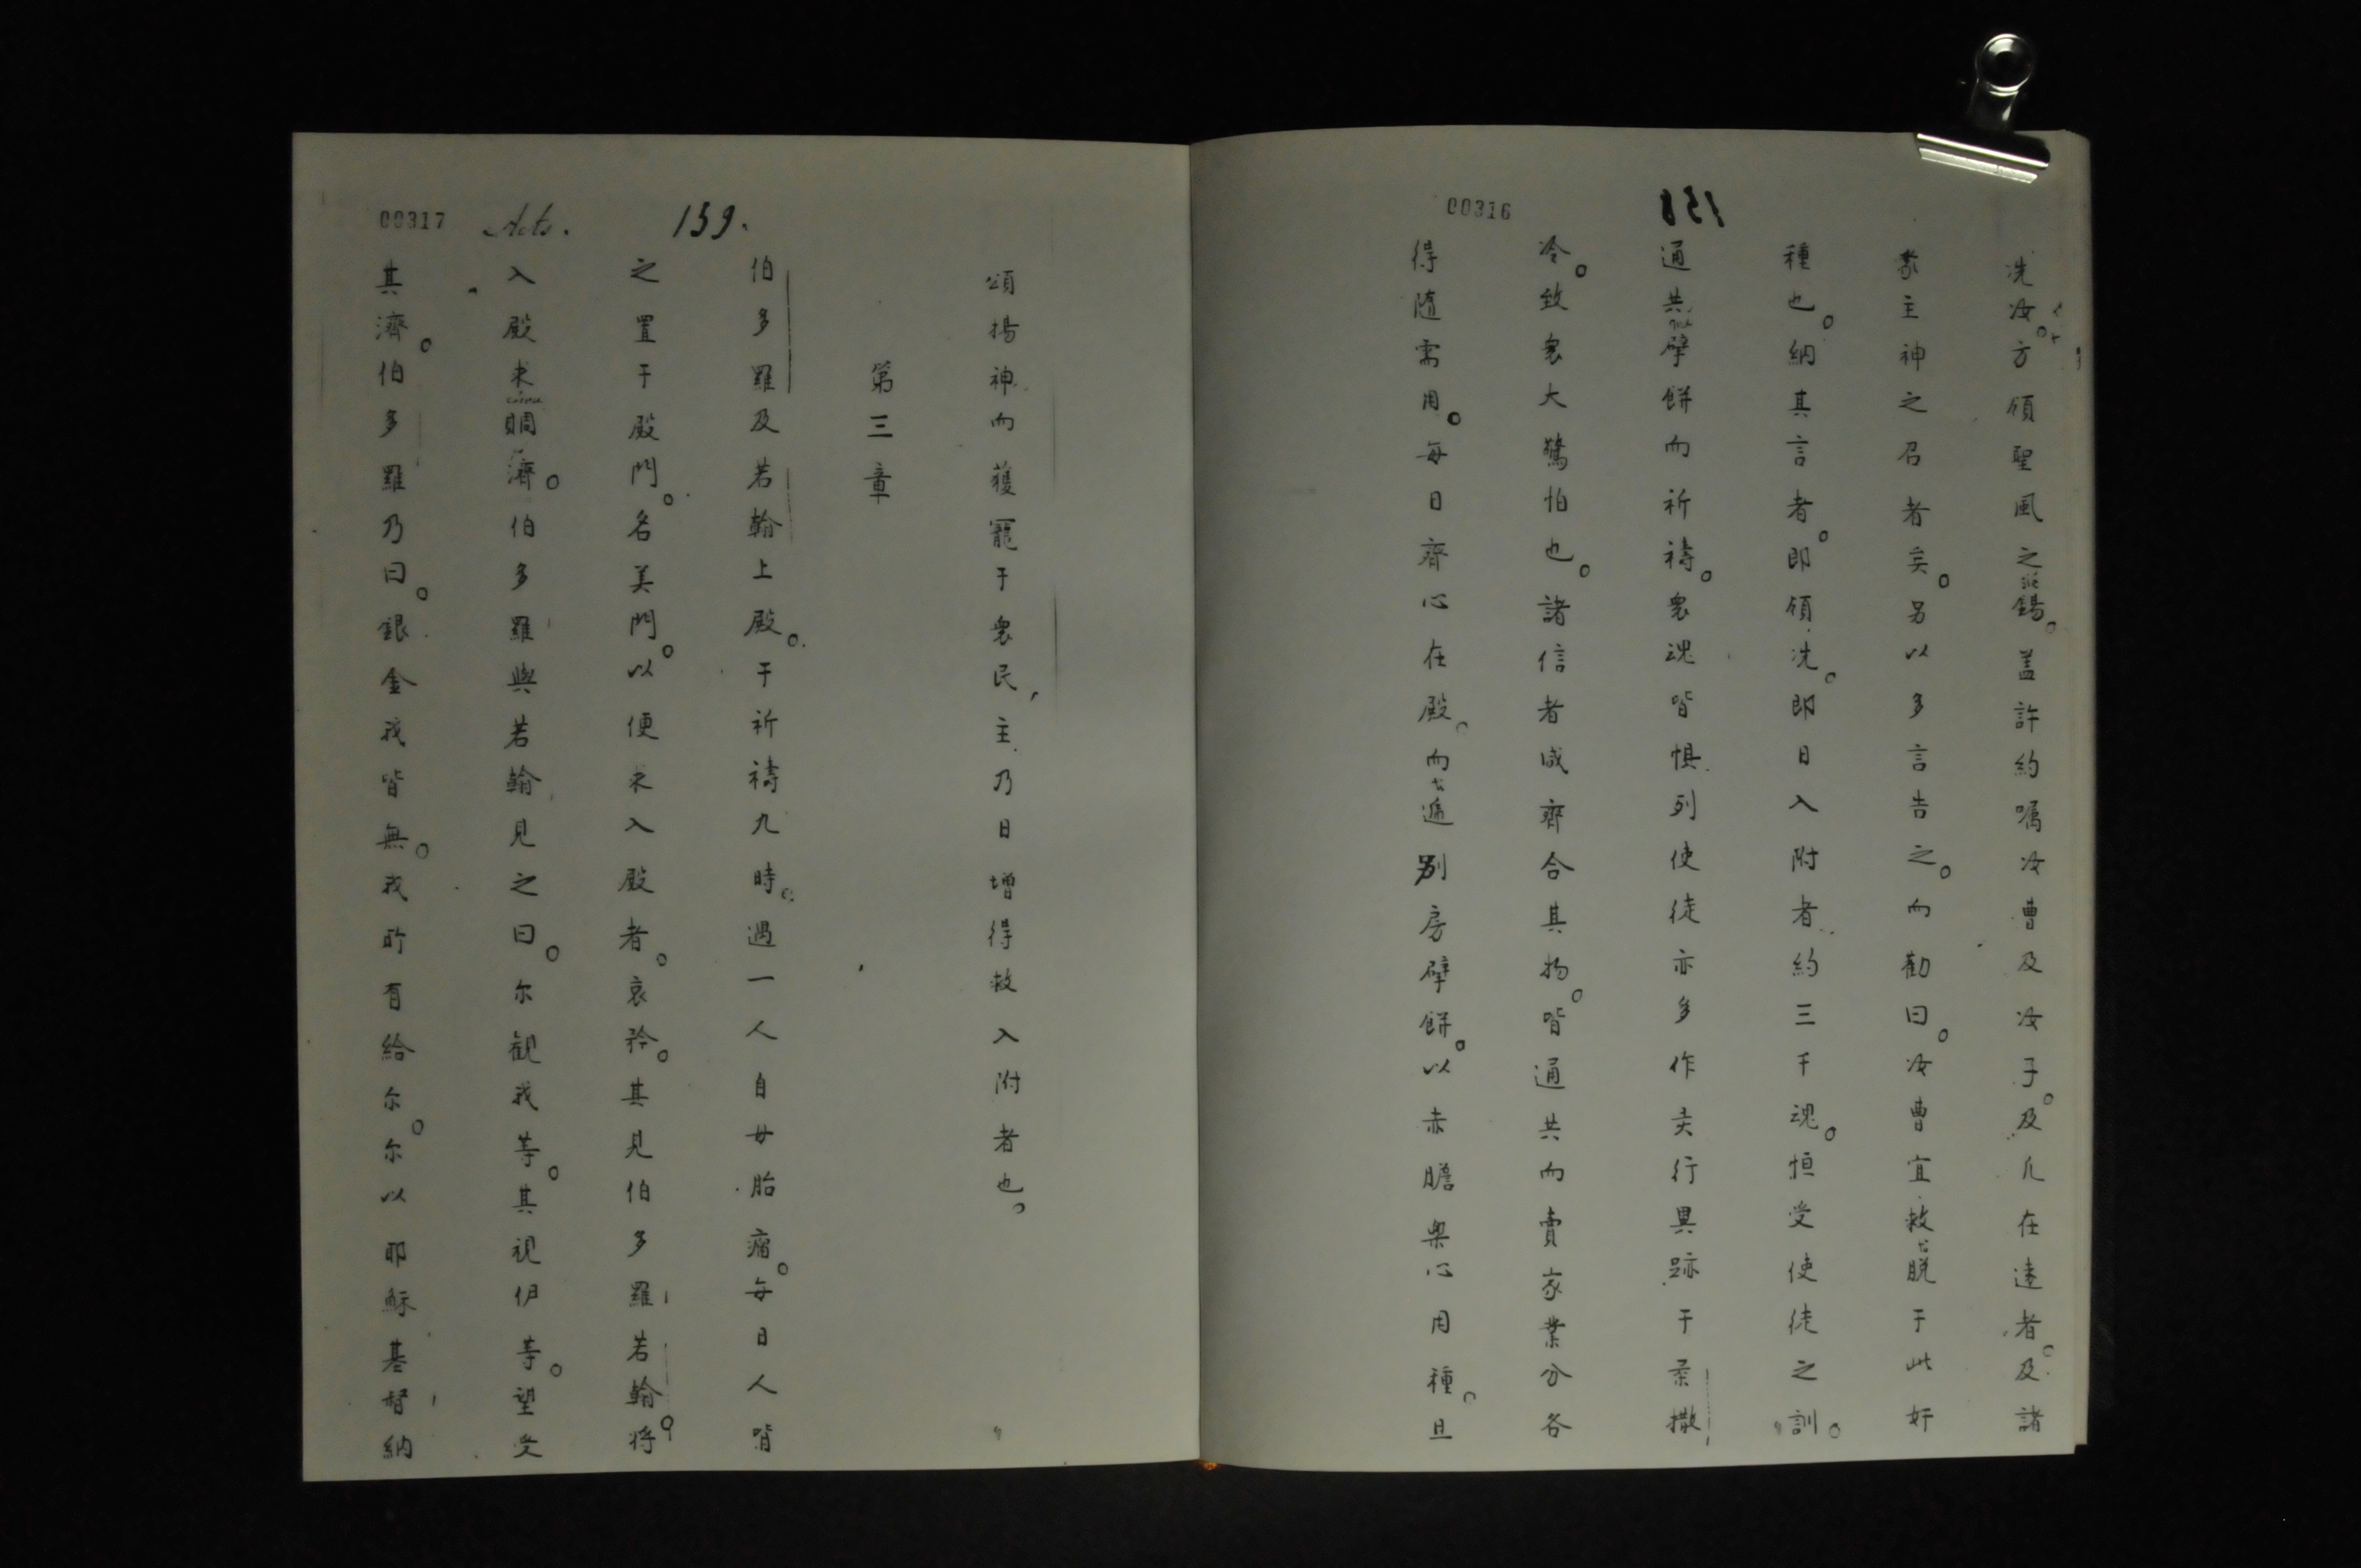 00316
158
洗汝。方領聖風之錫。盖許約嘱汝曹及汝子。及凢在遠者。及諸
蒙主神之召者矣。另以多言告之。而勸曰。汝曹宜救脱于此奸
種也。納其言者。即領洗。即日入附者約三千魂。恒受使徒之訓。
通共擘餅而祈禱。衆魂皆惧。列使徒亦多作灵行異跡于柔撒
冷。致衆大驚怕也。諸信者咸齊合其物。皆通共而賣家業分各
得随需用。每日齊心在殿。而遞别房擘餅。以赤膽樂心用種。且
00317
Acts.
159.
頌揚神而獲寵于衆民，主乃日增得救入附者也。
第三章
伯多羅及若翰上殿。于祈禱九時。遇一人自母胎痛。每日人皆
之置于殿門。名美門。以便求入殿者。哀矜。其見伯多羅若翰。将
入殿求賙濟。伯多羅與若翰見之曰。尔觀我等。其視伊等。望受
其濟。伯多羅乃曰。銀金我皆無。我所有給尔。尔以耶穌基督納